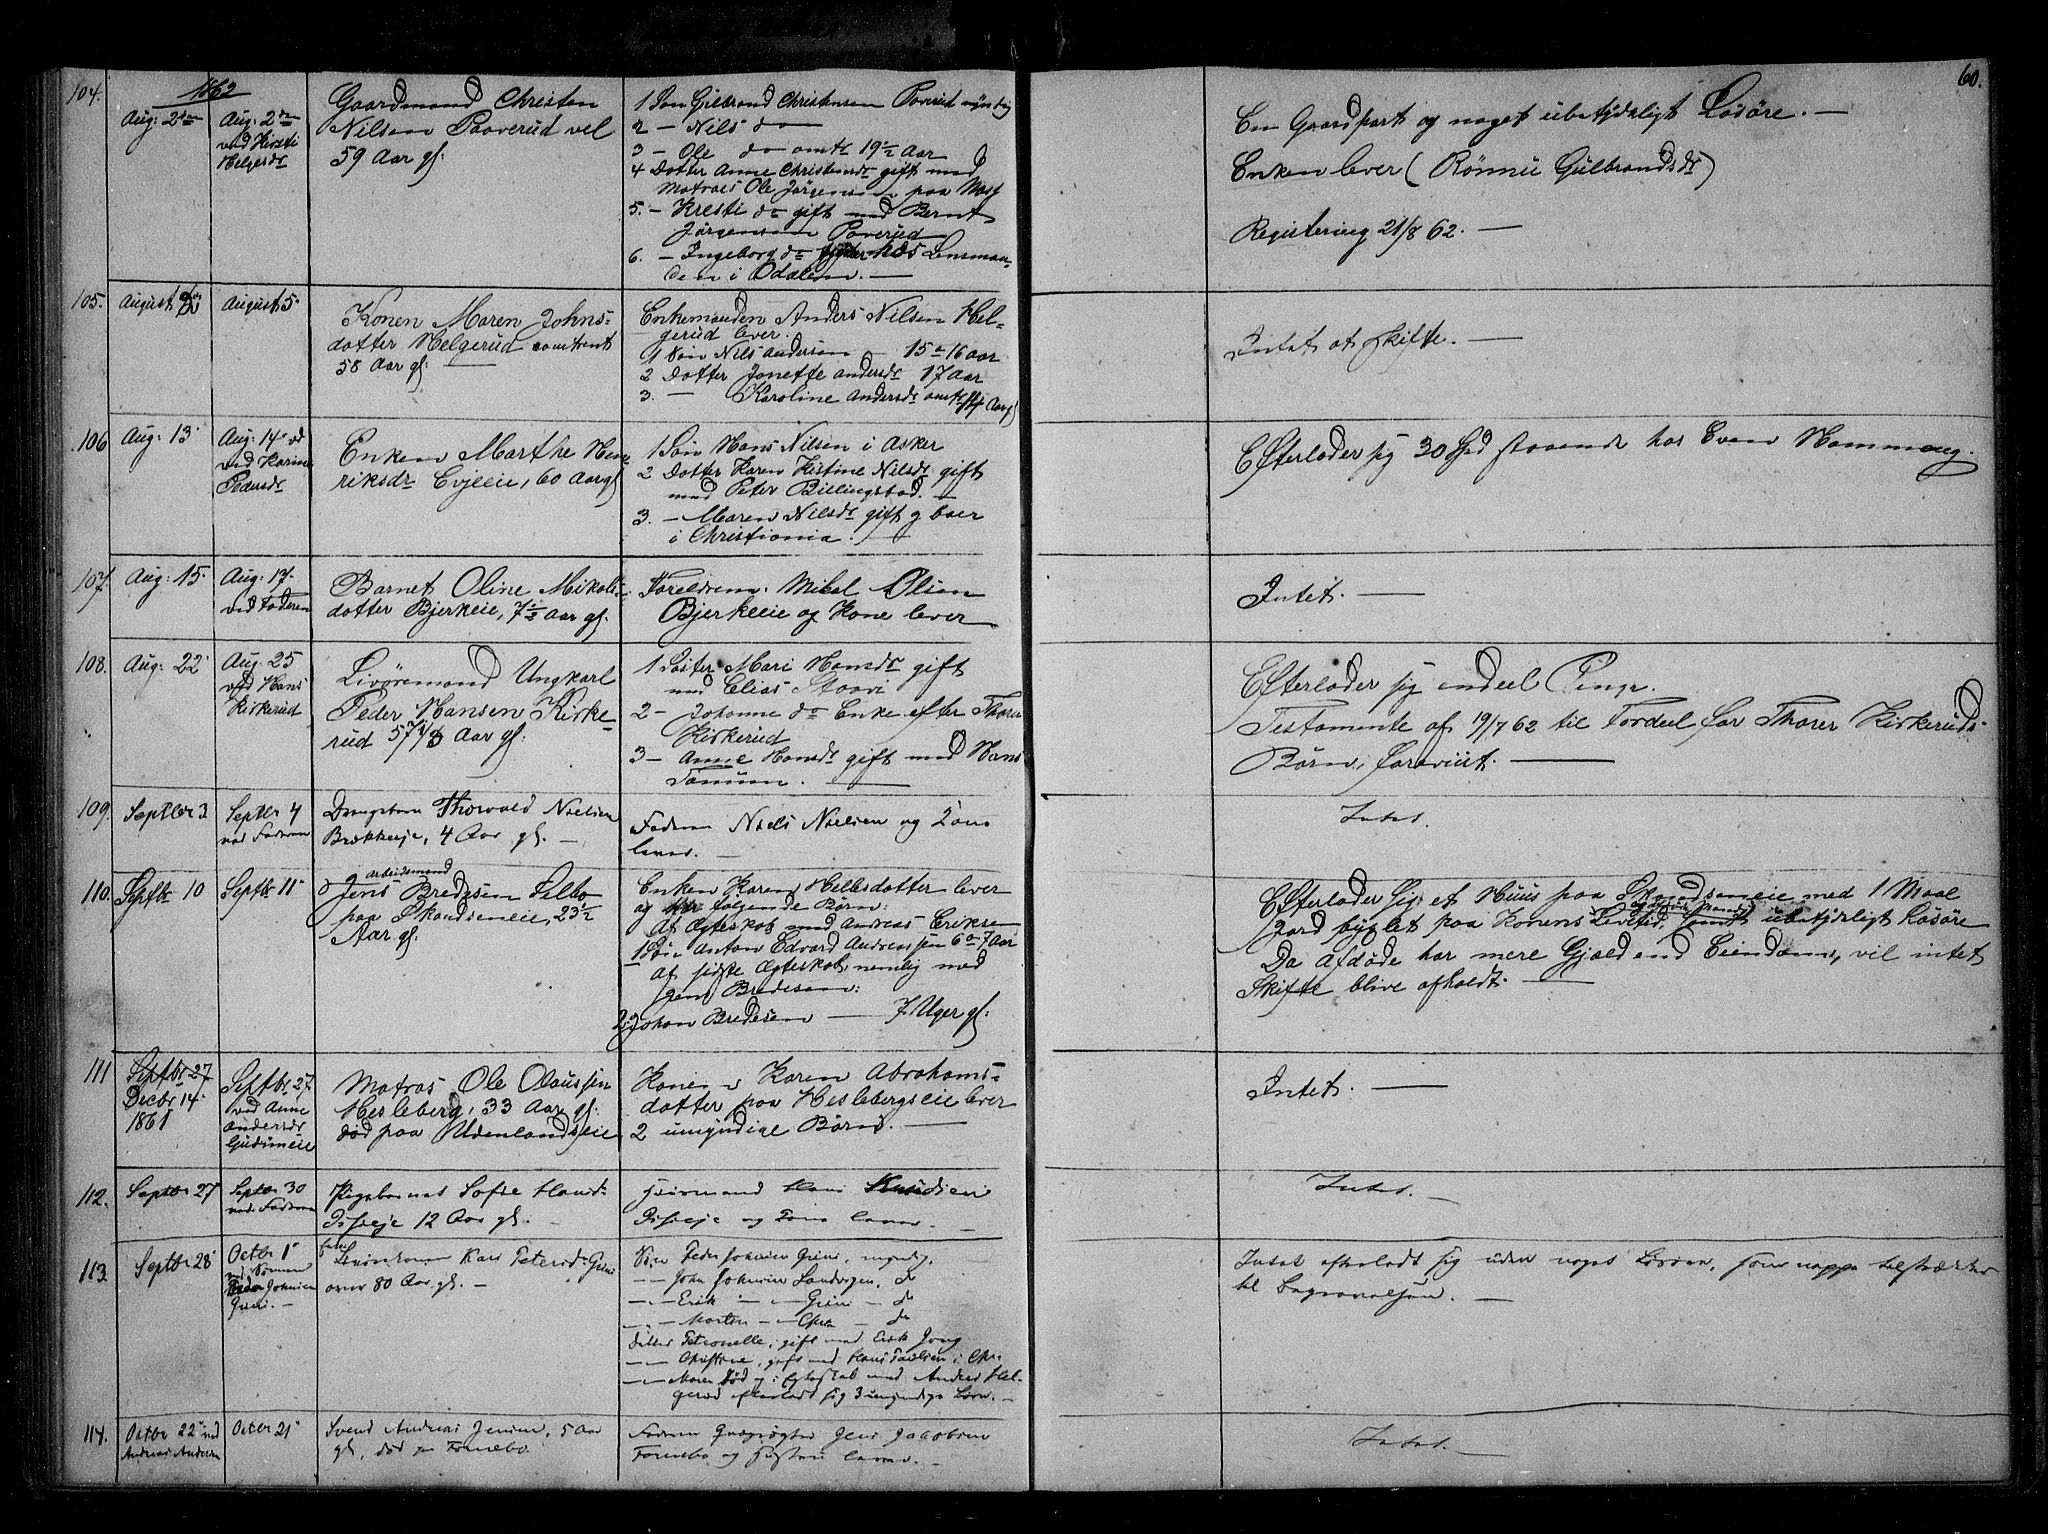 60.
1862
104.
Aug: 2den
Aug: 2den
ved Kirsti
Helgersdr
Gaardmand Christen
Nilsen Paaverud vel
59 Aar gl:
1 Søn Gulbrand Christensen Paverud myndig
2 — Nils do
3 — Ole do omtr 19½ Aar
4 Dotter Anne Christensdr gift med
Matroes Ole Jørgensen paa Nasf
5. — Kresti do gift med Bernt
Jørgensen Paverud
6. — Ingeborg do hos Lensman-
den i Odalen. —
En Gaardpart og noget ubetydeligt Løsøre. —
Enken lever (Rønnie Gulbrandsdr)
Registering 21/8 62. —
105.
August
August 5
Konen Maren Johns-
dotter Helgerud omtrent
58 Aar gl: —
Enkemanden Anders Nilsen Hel-
gerud lever.
1 Søn Nils Andersen — 15 a 16 Aar
2 Dotter Jonette Andersdr 17 Aar
3. — Karoline Andersdr omtr 14 Aar gl
Intet at skifte. —
106
Aug: 13
Aug: 14
ved Karine
Pedersdr
Enken Marthe Hen-
riksdr Evjeeie, 60 Aar gl
1 Søn Hans Nilsen i Asker
2 Dotter Karen Kistine Nilsdr gift
med Peter Billingstad. —
3. — Maren Nilsdr gift g boer
i Christiania. —
Efterlader sig 30 Spd staaende hos Even Hammang.
107.
Aug: 15.
Aug: 17.
ved Faderen
Barnet Oline Mikels-
dotter Bjerkeie, 7½ Aar gl.
Foreldrene: Mikel Olsen
Bjerkeeie og Kone lever
Intet. —
108.
Aug: 22
Aug. 25
ved Hans
Kirkerud
Livøremand Ungkarl
Peder Hansen Kirke-
rud 57 Aar gl:
1 Søster Mari Hansdr gift
med Elias Staavi
2 — Johanne do Enke efter Thorer
Kirkerud
3 — Anne Hansdr gift med Hans
Tanum. —
Efterlader sig endeel Penge.
Testamente af 19/7 62 til Fordeel for Thorer Kirkeruds
Børn, foreviist. —
109.
Septbr 3
Septbr 4
ved Faderen
Drengebarn Thorvald Nielsen
Brækkeeje, 4 Aar gl. —
Fadren Niels Nielsen og Kone
lever. —
Intet.
110.
Septbr 10
Septbr 11
arbeidsmand
Jens Bredesen Selbo
paa Skandsemeie, 23½
Aar gl:
Enken Karen Helbsdotter lever
og følgende Børn:
Af Ægteskab med Andreas Eriksen
1 Søn Anton Edvard Andreassen 6 a 7 Aar
af sidste Ægteskab, nemlig med
Jens Bredesen:
2. Johan Bredesen — 7 Uger gl:
Efterlader sig et Huus paa Skandsemeie med 1 Maal
Jord byxlet paa Konens Livstid, ubetydeligt Løsøre
Da Afdøde har mere Gjæld end Eiendom, vil intet
Skifte blive afholdt. —
111
Septbr 27
Decbr 14
1861
Septbr 27
ved Anne
Andersdr
Gudimeie
Matros Ole Olaussen
Hesleberg, 33 Aar gl:
død paa Udenlandseie
Konen Karen Abrahams-
dotter paa Heslebergseie lever
2 umyndige Børn. —
Intet. —
112.
Septbr 27
Septbr 30
ved Fadren
Pigebarnet Sofie Hansd-
12 Aar gl. —
Hans Knudsen
og Kone lever. —
Intet. —
113.
Septbr 28
Octbr 1
ved Sønnen
Peder Johnsen
Grini. —
Kari Petersd Grini
over 80 Aar gl. —
Søn Peder Johnsen Grini, myndig.
— John Johnsen Sandvigen, do
— Erik — Grini — do
— Morten — do
Datter Petronelle, gift med Erik Jong
— Christine, gift med Hans Paulsen i Chr.
— Maren død og i Egteskab med Anders Hel-
gerud efterladt sig 3 umyndige Børn. —
Intet efterladt sig uden noget Løsøre, som neppe tilstrækker
til Begravelsen. —
114.
Octbr 22 ved
Andreas Andersen
Octbr 21
Svend Andreas Jensen, 5 Aar
gl, død paa Fornebo.
Fadren Jens Jacobsen
Fornebo og Hustru lever. —
Intet. —